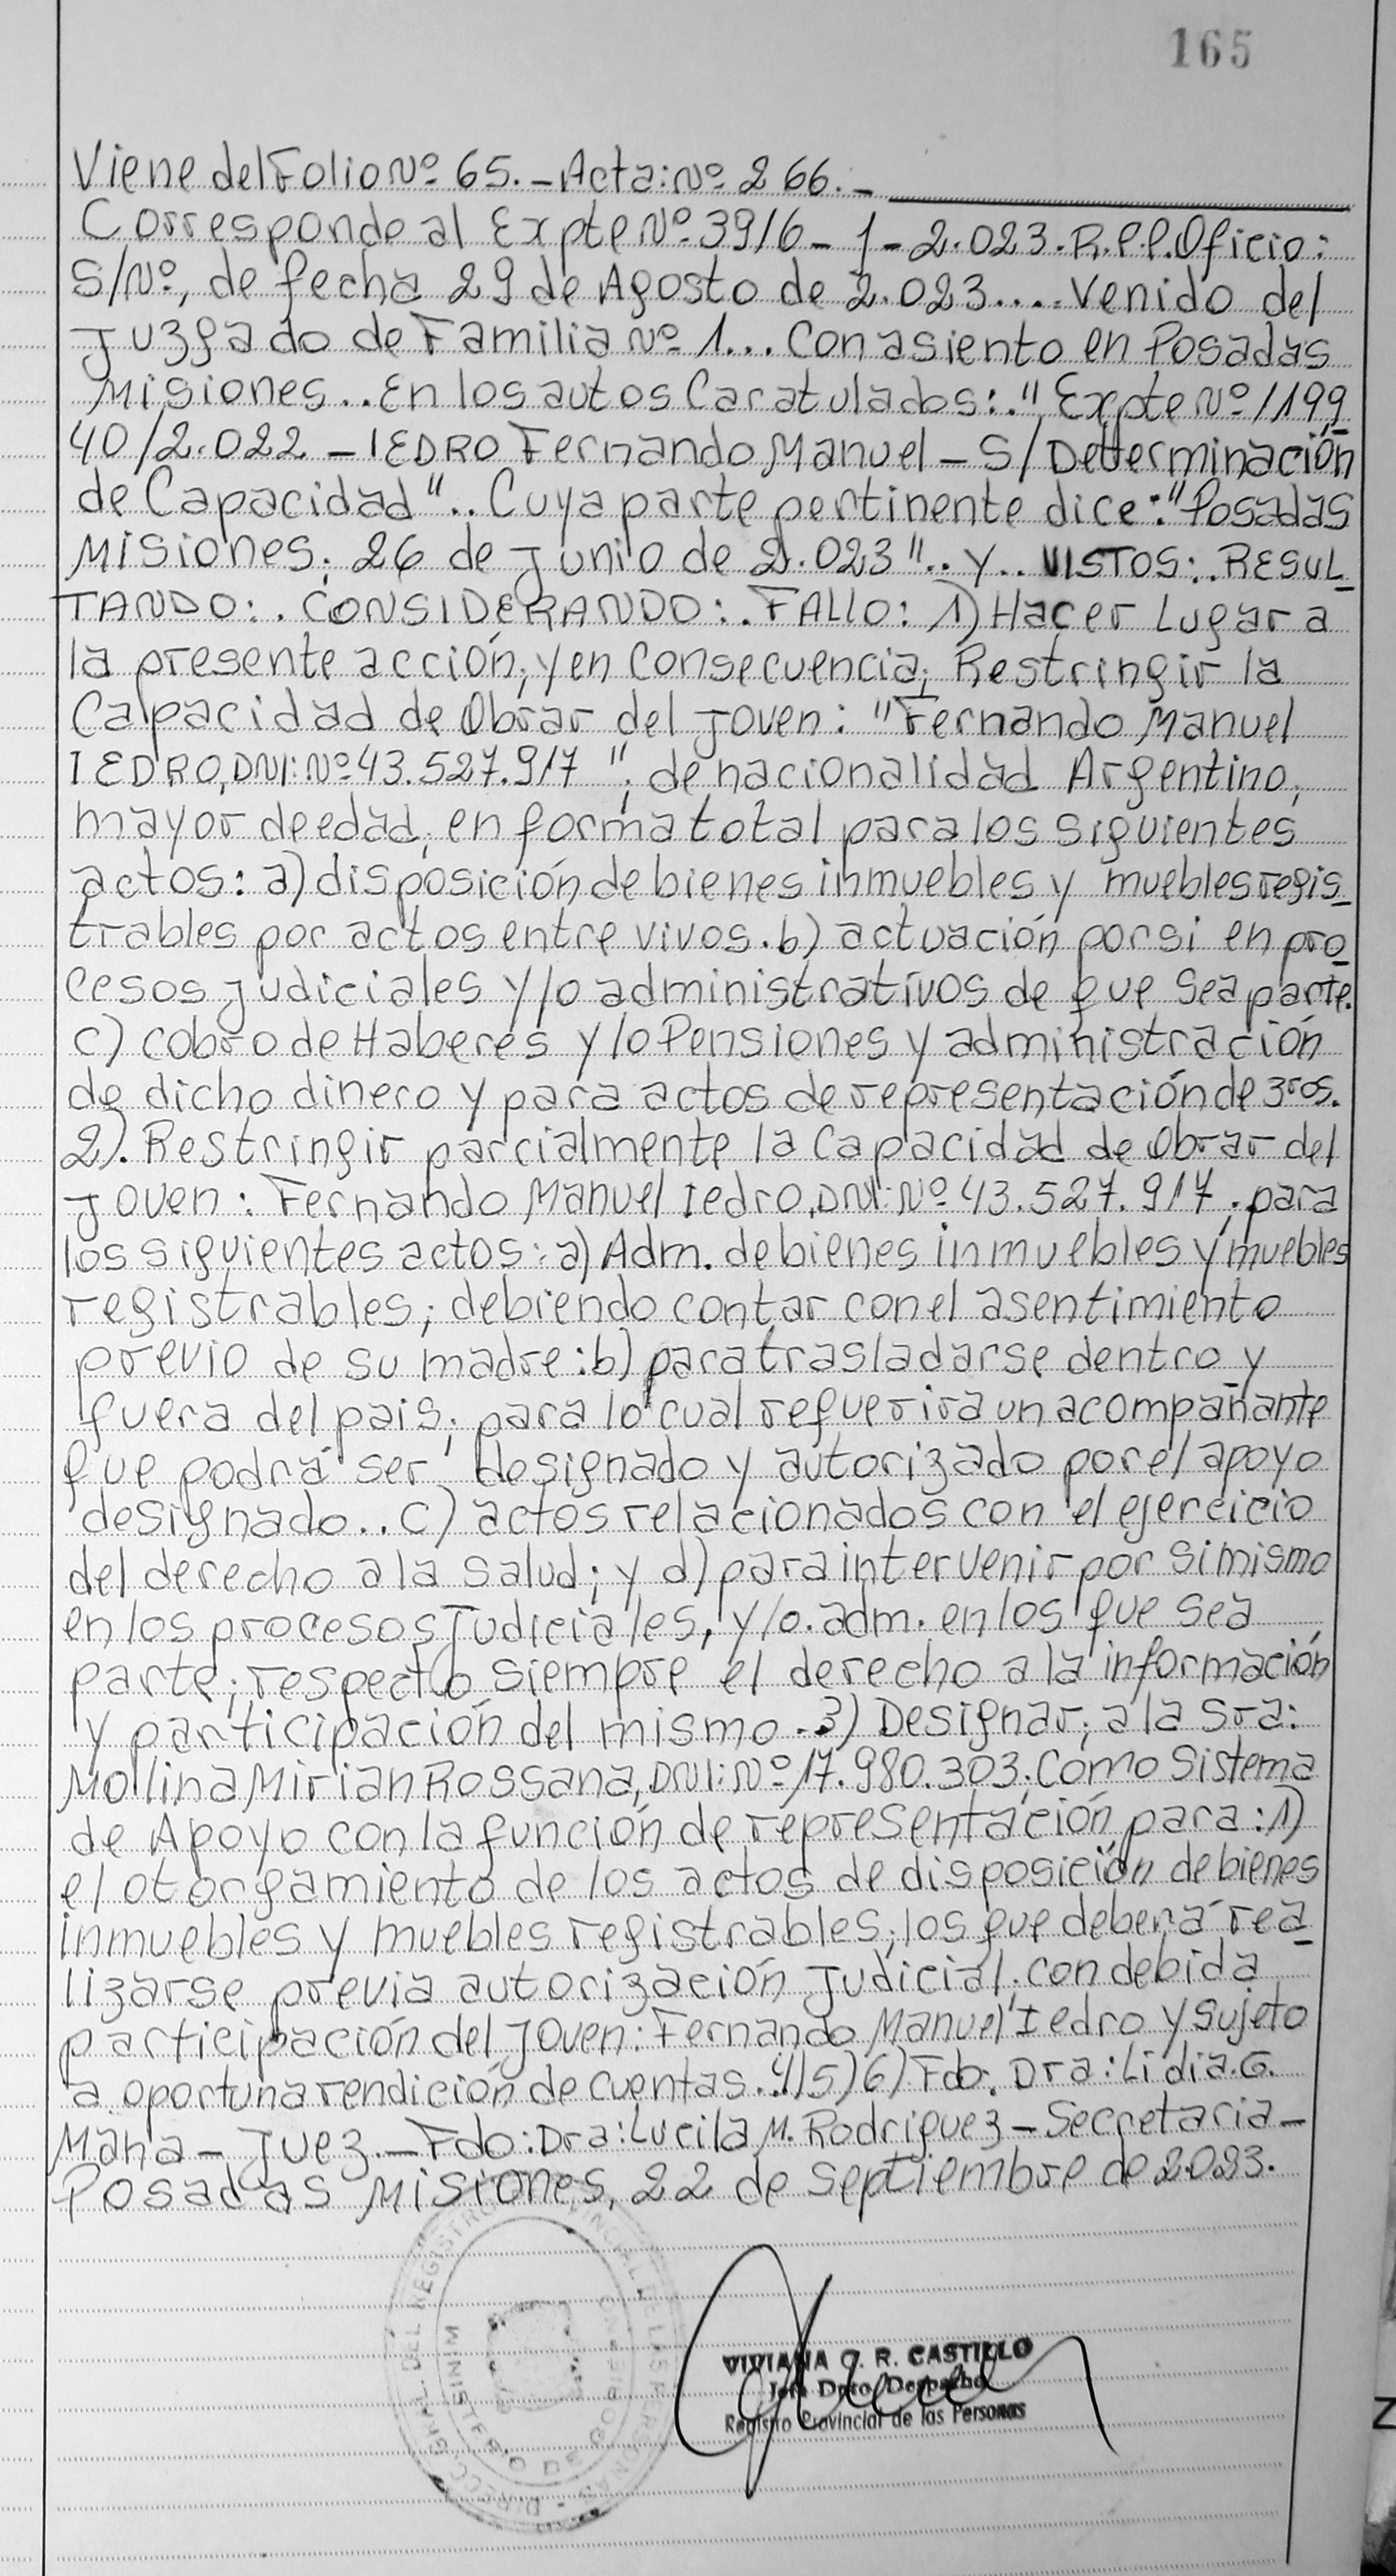 165
Viene del Folio Nº 65.- Acta: Nº 266.-
Corresponde al Expte Nº 3916-1-2.023.R.P.P. Oficio:
S/Nº, de fecha 29 de Agosto de 2.023.... Venido del
Juzgado de Familia Nº 1... Con asiento en Posadas
Misiones.. En los autos Caratulados:." Expte Nº 1199
40/2.022 - IEDRO Fernando Manuel - S/ Determinación
de Capacidad".. Cuya parte pertinente dice: "Posadas
Misiones; 26 de Junio de 2.023".. Y.. VISTOS:. RESUL
TANDO:. CONSIDERANDO:. FALLO: 1) Hacer Lugar a
la presente acción; y en Consecuencia; Restringir la
Capacidad de Obrar del Joven: "Fernando Manuel
IEDRO, DNI: Nº 43.527.917"; de nacionalidad Argentino;
mayor de edad; en forma total para los siguientes
actos: a) disposición de bienes inmuebles y muebles regis
trables por actos entre vivos. b) actuación por si en pro
cesos Judiciales y/o administrativos de que sea parte.
c) cobro de Haberes y/o Pensiones y administración
de dicho dinero y para actos de representación de 3ros.
2). Restringir parcialmente la Capacidad de Obrar del
Joven: Fernando Manuel Iedro, DNI: Nº 43.527.917; para
los siguientes actos: a) Adm. de bienes inmuebles y muebles
registrables; debiendo contar con el asentimiento
previo de su madre: b) para trasladarse dentro y
fuera del pais; para lo cual requerira un acompañante
que podrá ser designado y autorizado por el apoyo
designado.. C) actos relacionados con el ejercicio
del derecho a la salud; y d) para intervenir por si mismo
en los procesos Judiciales, y/o. adm. en los que sea
parte; respecto siempre el derecho a la información
y participación del mismo. 3) Designar; a la Sra:
Molina Mirian Rossana, DNI: Nº 17.980.303; Como Sistema
de Apoyo con la función de representación para: 1)
el otorgamiento de los actos de disposición de bienes
inmuebles y muebles registrables; los que deberá rea
lizarse previa autorización Judicial; con debida
participación del Joven: Fernando Manuel Iedro y sujeto
a oportuna rendición de cuentas. 4) 5) 6) Fdo. Dra: Lidia. G.
Maña - Juez.- Fdo: Dra: Lucila M. Rodriguez - Secretaria -
Posadas Misiones, 22 de Septiembre de 2.023.
VIVIANA C. R. CASTILLO
Jefa Dpto. Despacho
Registro Provincial de las Personas